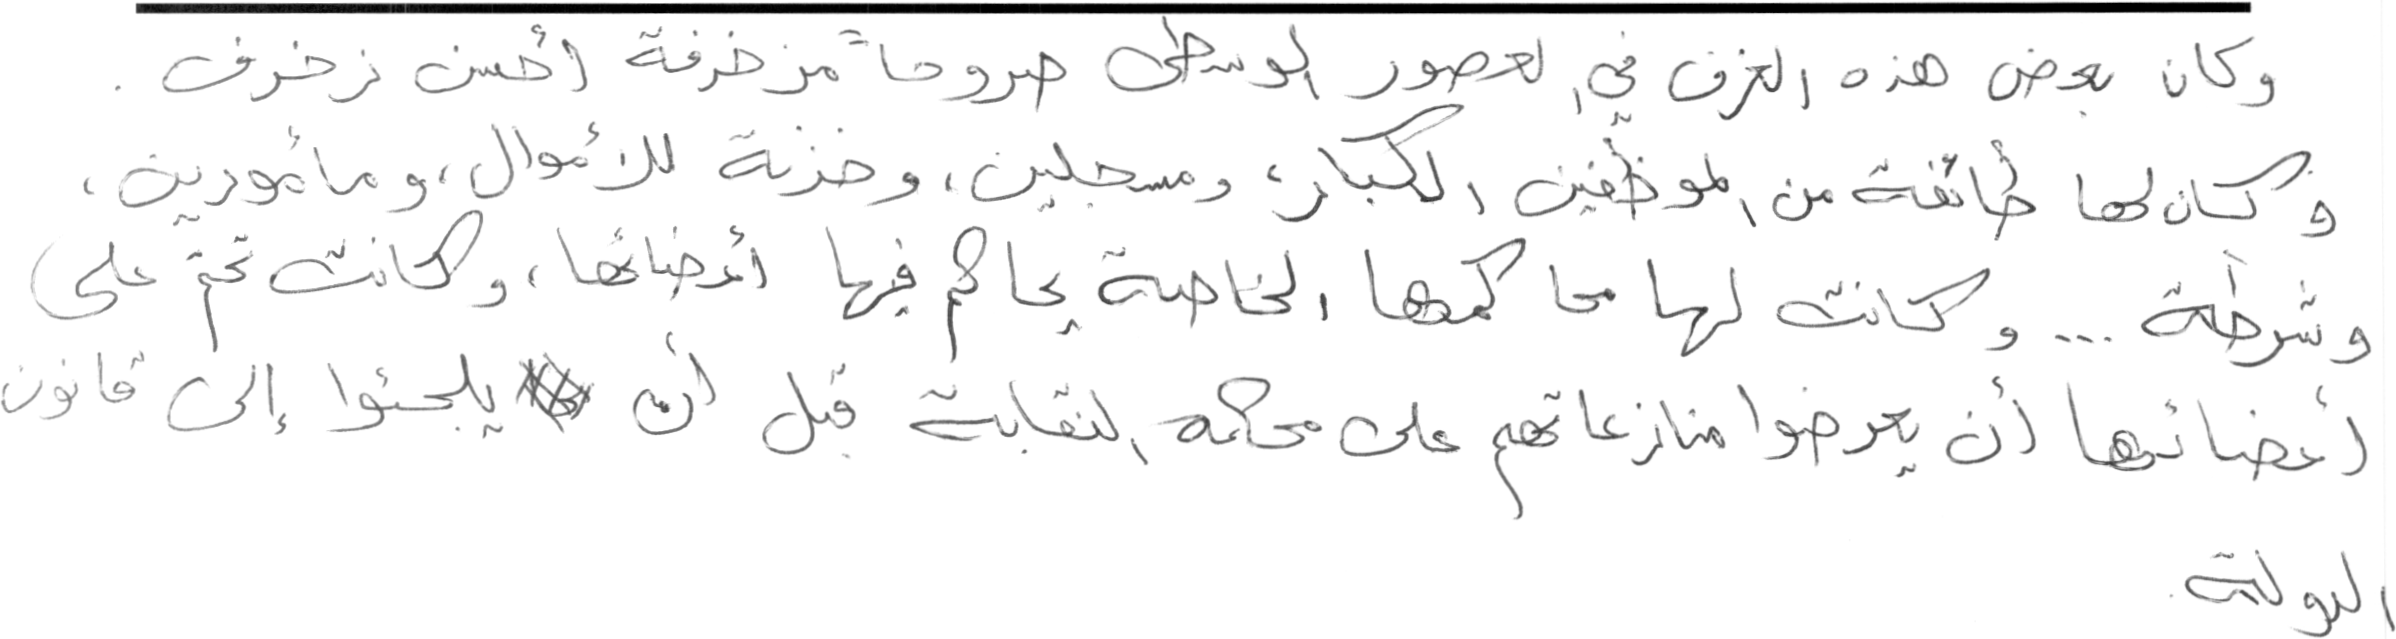 وكان بعض هذه الغرف في العصور الوسطى صروحاً مزخرفة أحسن زخرف .
وكان لها طائفة من الموظّفين الكبار، ومسجلين، وخزنة للأموال، ومأمورين،
وشرطة ... وكانت لها محاكمها الخاصة يحاكم فيها أعضائها، وكانت تحتم على
أعضائها أن يعرضوا منازعاتهم على محكمة النقابة قبل أن يلجئوا إلى قانون
الدولة.